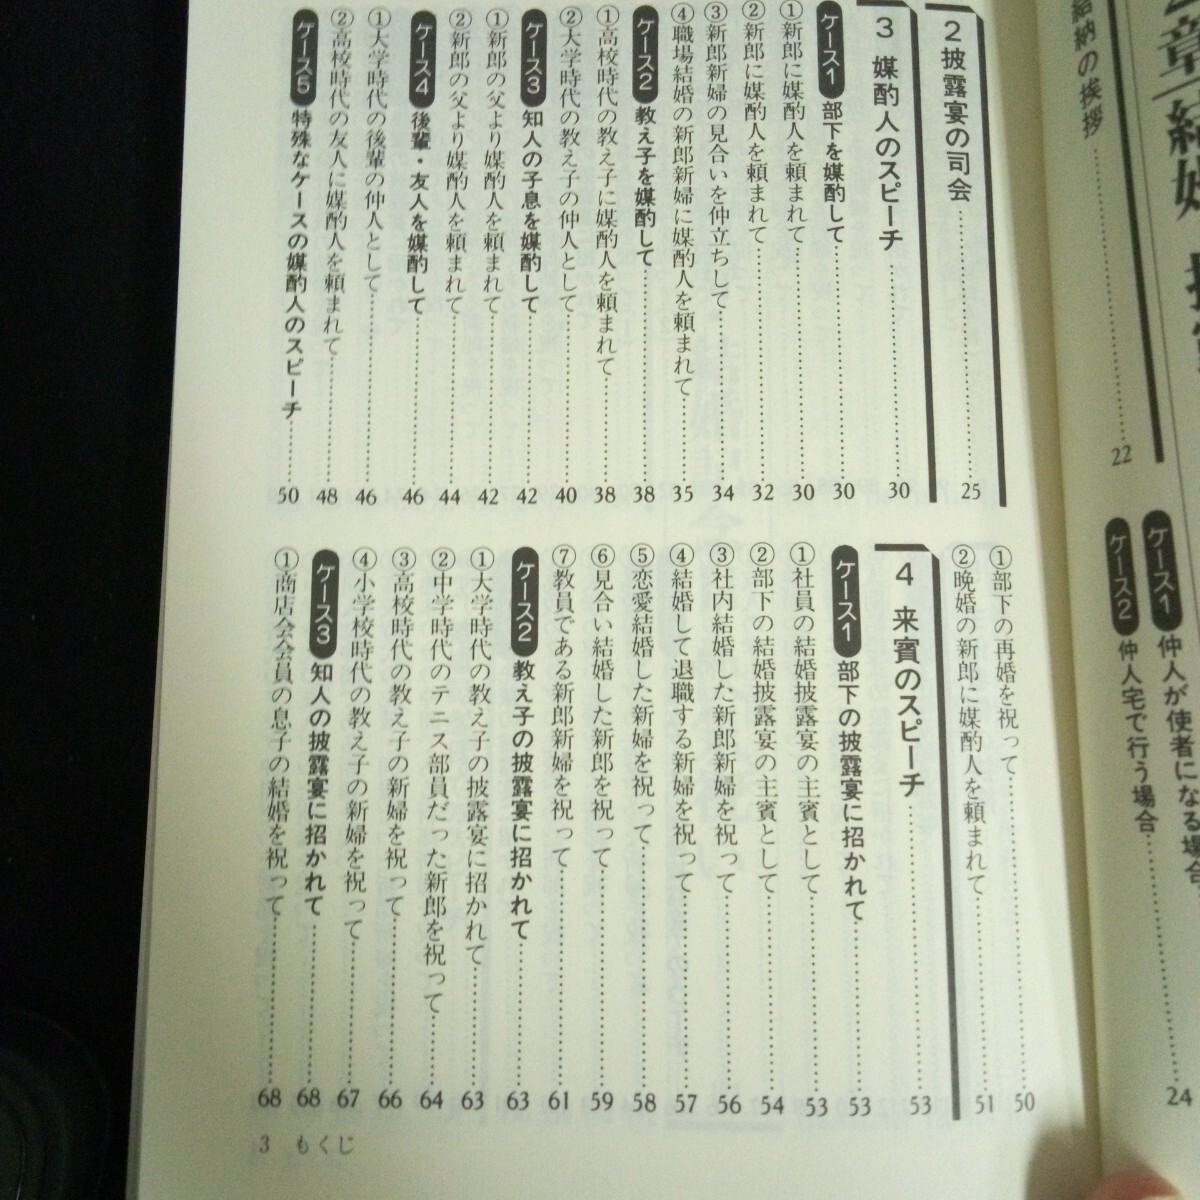 結納の挨拶……22
ケース1 仲人が使者になる場合
ケース2 仲人宅で行う場合……24
2 披露宴の司会……25
3 媒酌人のスピーチ……30
ケース1 部下を媒酌して……30
①新郎に媒酌人を頼まれて……30
②新郎に媒酌人を頼まれて……32
③新郎新婦の見合いを仲立ちして……34
④職場結婚の新郎新婦に媒酌人を頼まれて……35
ケース2 教え子を媒酌して……38
①高校時代の教え子に媒酌人を頼まれて……38
②大学時代の教え子の仲人として……40
ケース3 知人の子息を媒酌して……42
①新郎の父より媒酌人を頼まれて……42
②新郎の父より媒酌人を頼まれて……44
ケース4 後輩・友人を媒酌して……46
①大学時代の後輩の仲人として……46
②高校時代の友人に媒酌人を頼まれて……48
ケース5 特殊なケースの媒酌人のスピーチ……50
①部下の再婚を祝って……50
②晩婚の新郎に媒酌人を頼まれて……51
4 来賓のスピーチ……53
ケース1 部下の披露宴に招かれて……53
①社員の結婚披露宴の主賓として……53
②部下の結婚披露宴の主賓として……54
③社内結婚した新郎新婦を祝って……56
④結婚して退職する新婦を祝って……57
⑤恋愛結婚した新婦を祝って……58
⑥見合い結婚した新郎を祝って……59
⑦教員である新郎新婦を祝って……61
ケース2 教え子の披露宴に招かれて……63
①大学時代の教え子の披露宴に招かれて……63
②中学時代のテニス部員だった新郎を祝って……64
③高校時代の教え子の新婦を祝って……66
④小学校時代の教え子の新婦を祝って……67
ケース3 知人の披露宴に招かれて……68
①商店会会員の息子の結婚を祝って……68
3 もくじ